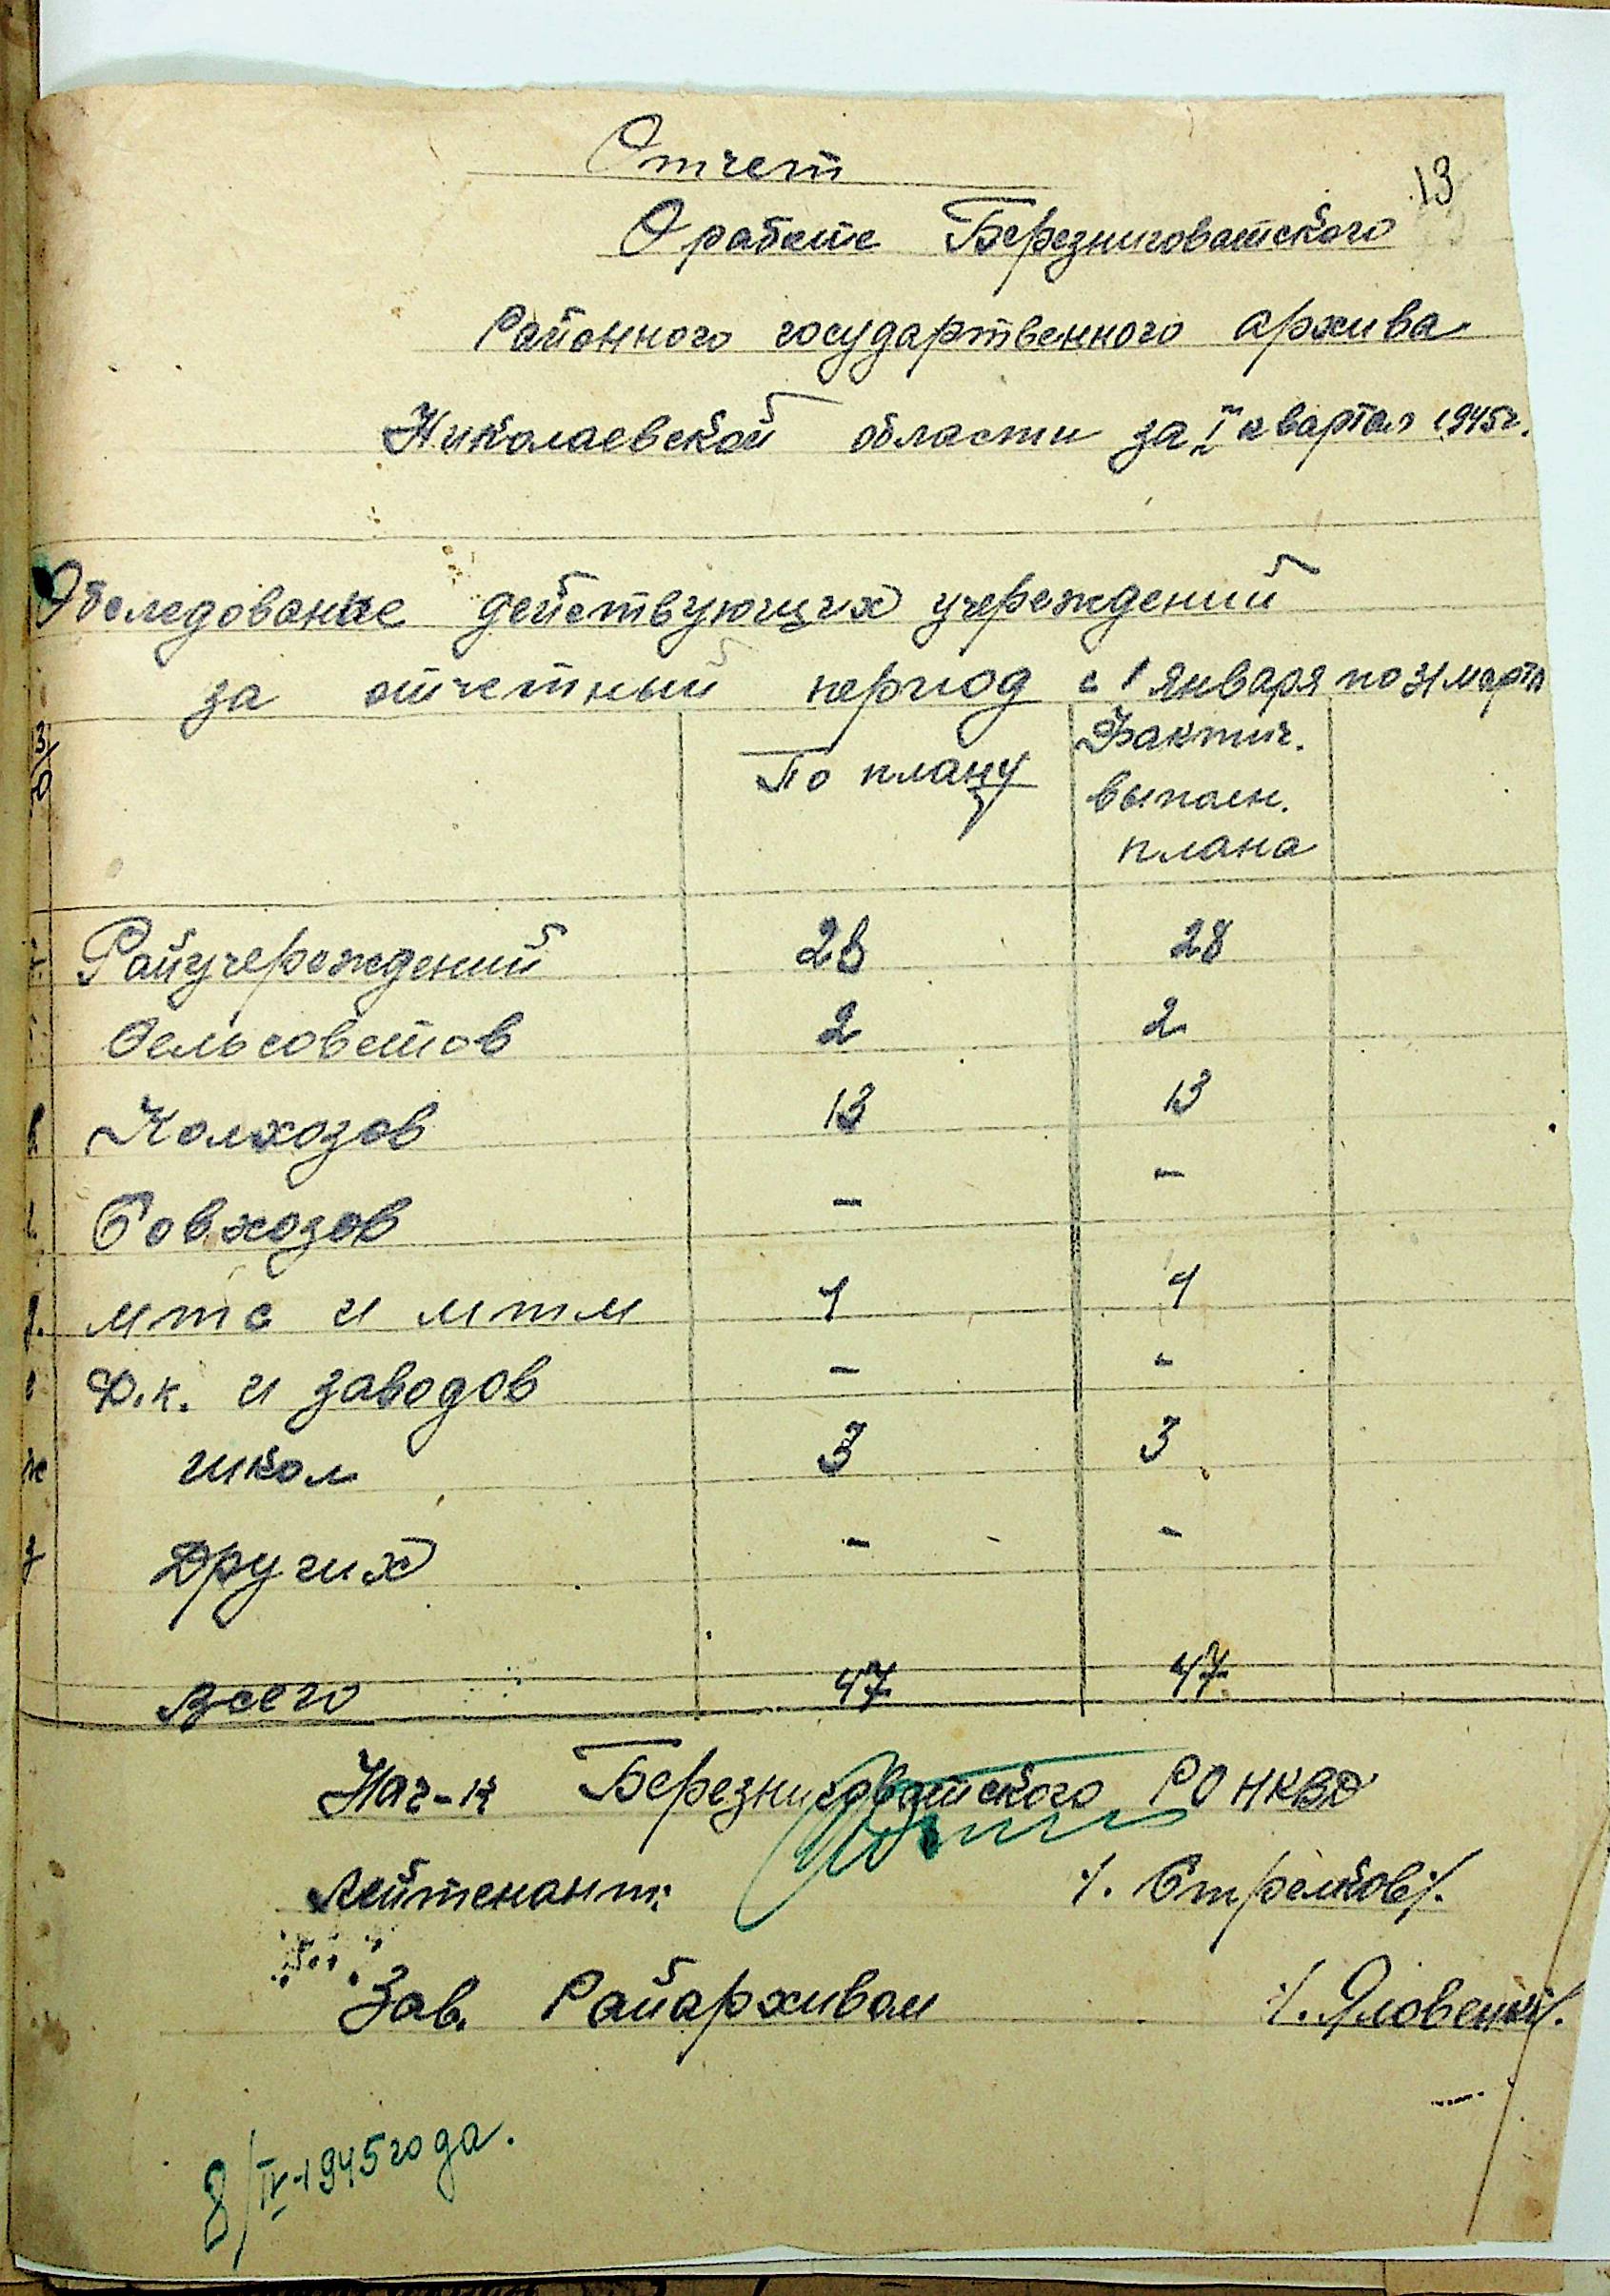 13
Отчет
О работе Березниговатского
Районного государственного архива
Николаевской области за I квартал 1945г.
Обследование действующих учереждений
за отчетный период с 1 января по 31 марта
По плану Фактич.
выполн.
плана
Райучереждений 28 28
Сельсоветов 2 2
Колхозов 13 13
Совхозов - -
мтс и мтм 1 1
Ф.к. и заводов - -
школ 3 3
Других - -
Всего 47 47
Нач-к Березниговатского РО НКВД
Лейтенант: /. Стрелков/.
Зав. Райархивом
8/IV-1945 года.